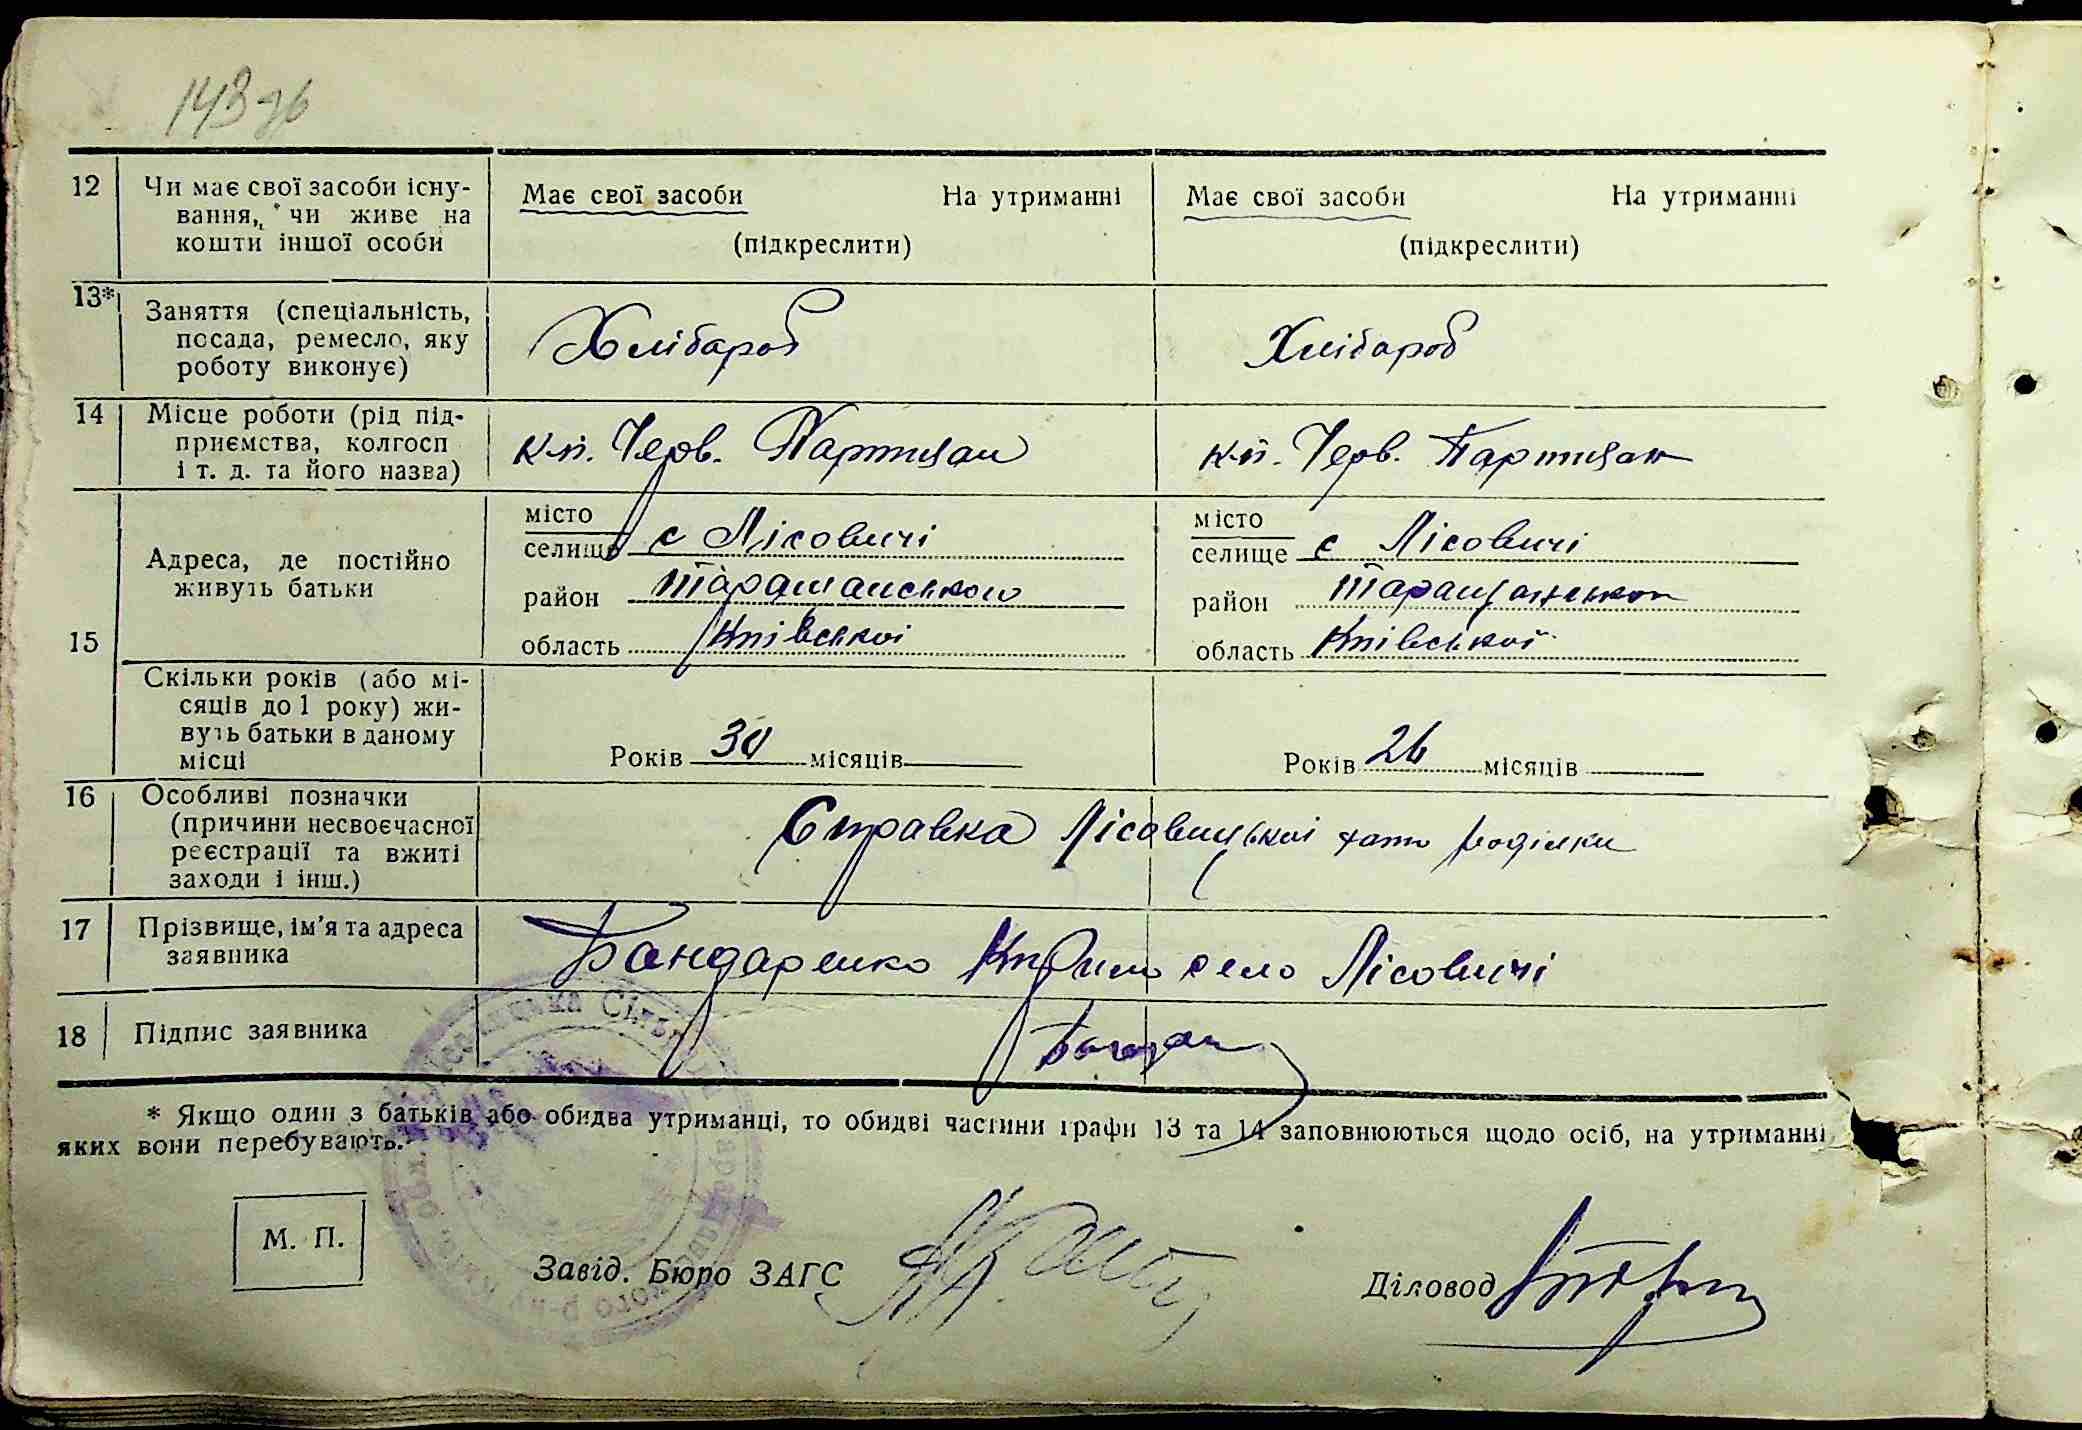 143 зв
12 Чи має свої засоби існу-
вання, чи живе на
кошти іншої особи
Має свої засоби На утриманні
(підкреслити)
Має свої засоби На утриманні
(підкреслити)
13* Заняття (спеціальність,
посада, ремесло, яку
роботу виконує)
Хлібароб
Хлібароб
14 Місце роботи (рід під-
приємства, колгосп
і т. д. та його назва)
к-п. Черв. Партизан
к-п. Черв. Партизан
15 Адреса, де постійно
живуть батьки
місто
селище с Лісовичі
район Таращанського
область Київської
місто
селище с Лісовичі
район Таращанського
область Київської
Скільки років (або мі-
сяців до 1 року) жи-
вуть батьки в даному
місці
Років 30 місяців
Років 26 місяців
16 Особливі позначки
(причини несвоєчасної
реєстрації та вжиті
заходи і інш.)
Справка Лісовицької хати роділки
17 Прізвище, ім'я та адреса
заявника
Бандаренко село Лісовичі
18 Підпис заявника
* Якщо один з батьків або обидва утриманці, то обидві частини графи 13 та 14 заповнюються щодо осіб, на утриманні
яких вони перебувають.
М. П.
Завід. Бюро ЗАГС
Діловод